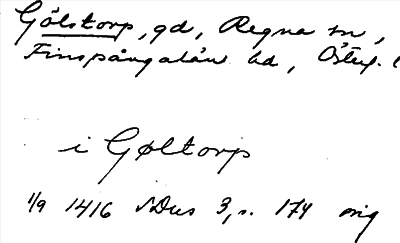 Gölstorp, gd, Regna sn,
Finspångaläns hd, Östergl.
i Gøltorp
1/9 1416 SDns 3, s. 174 orig